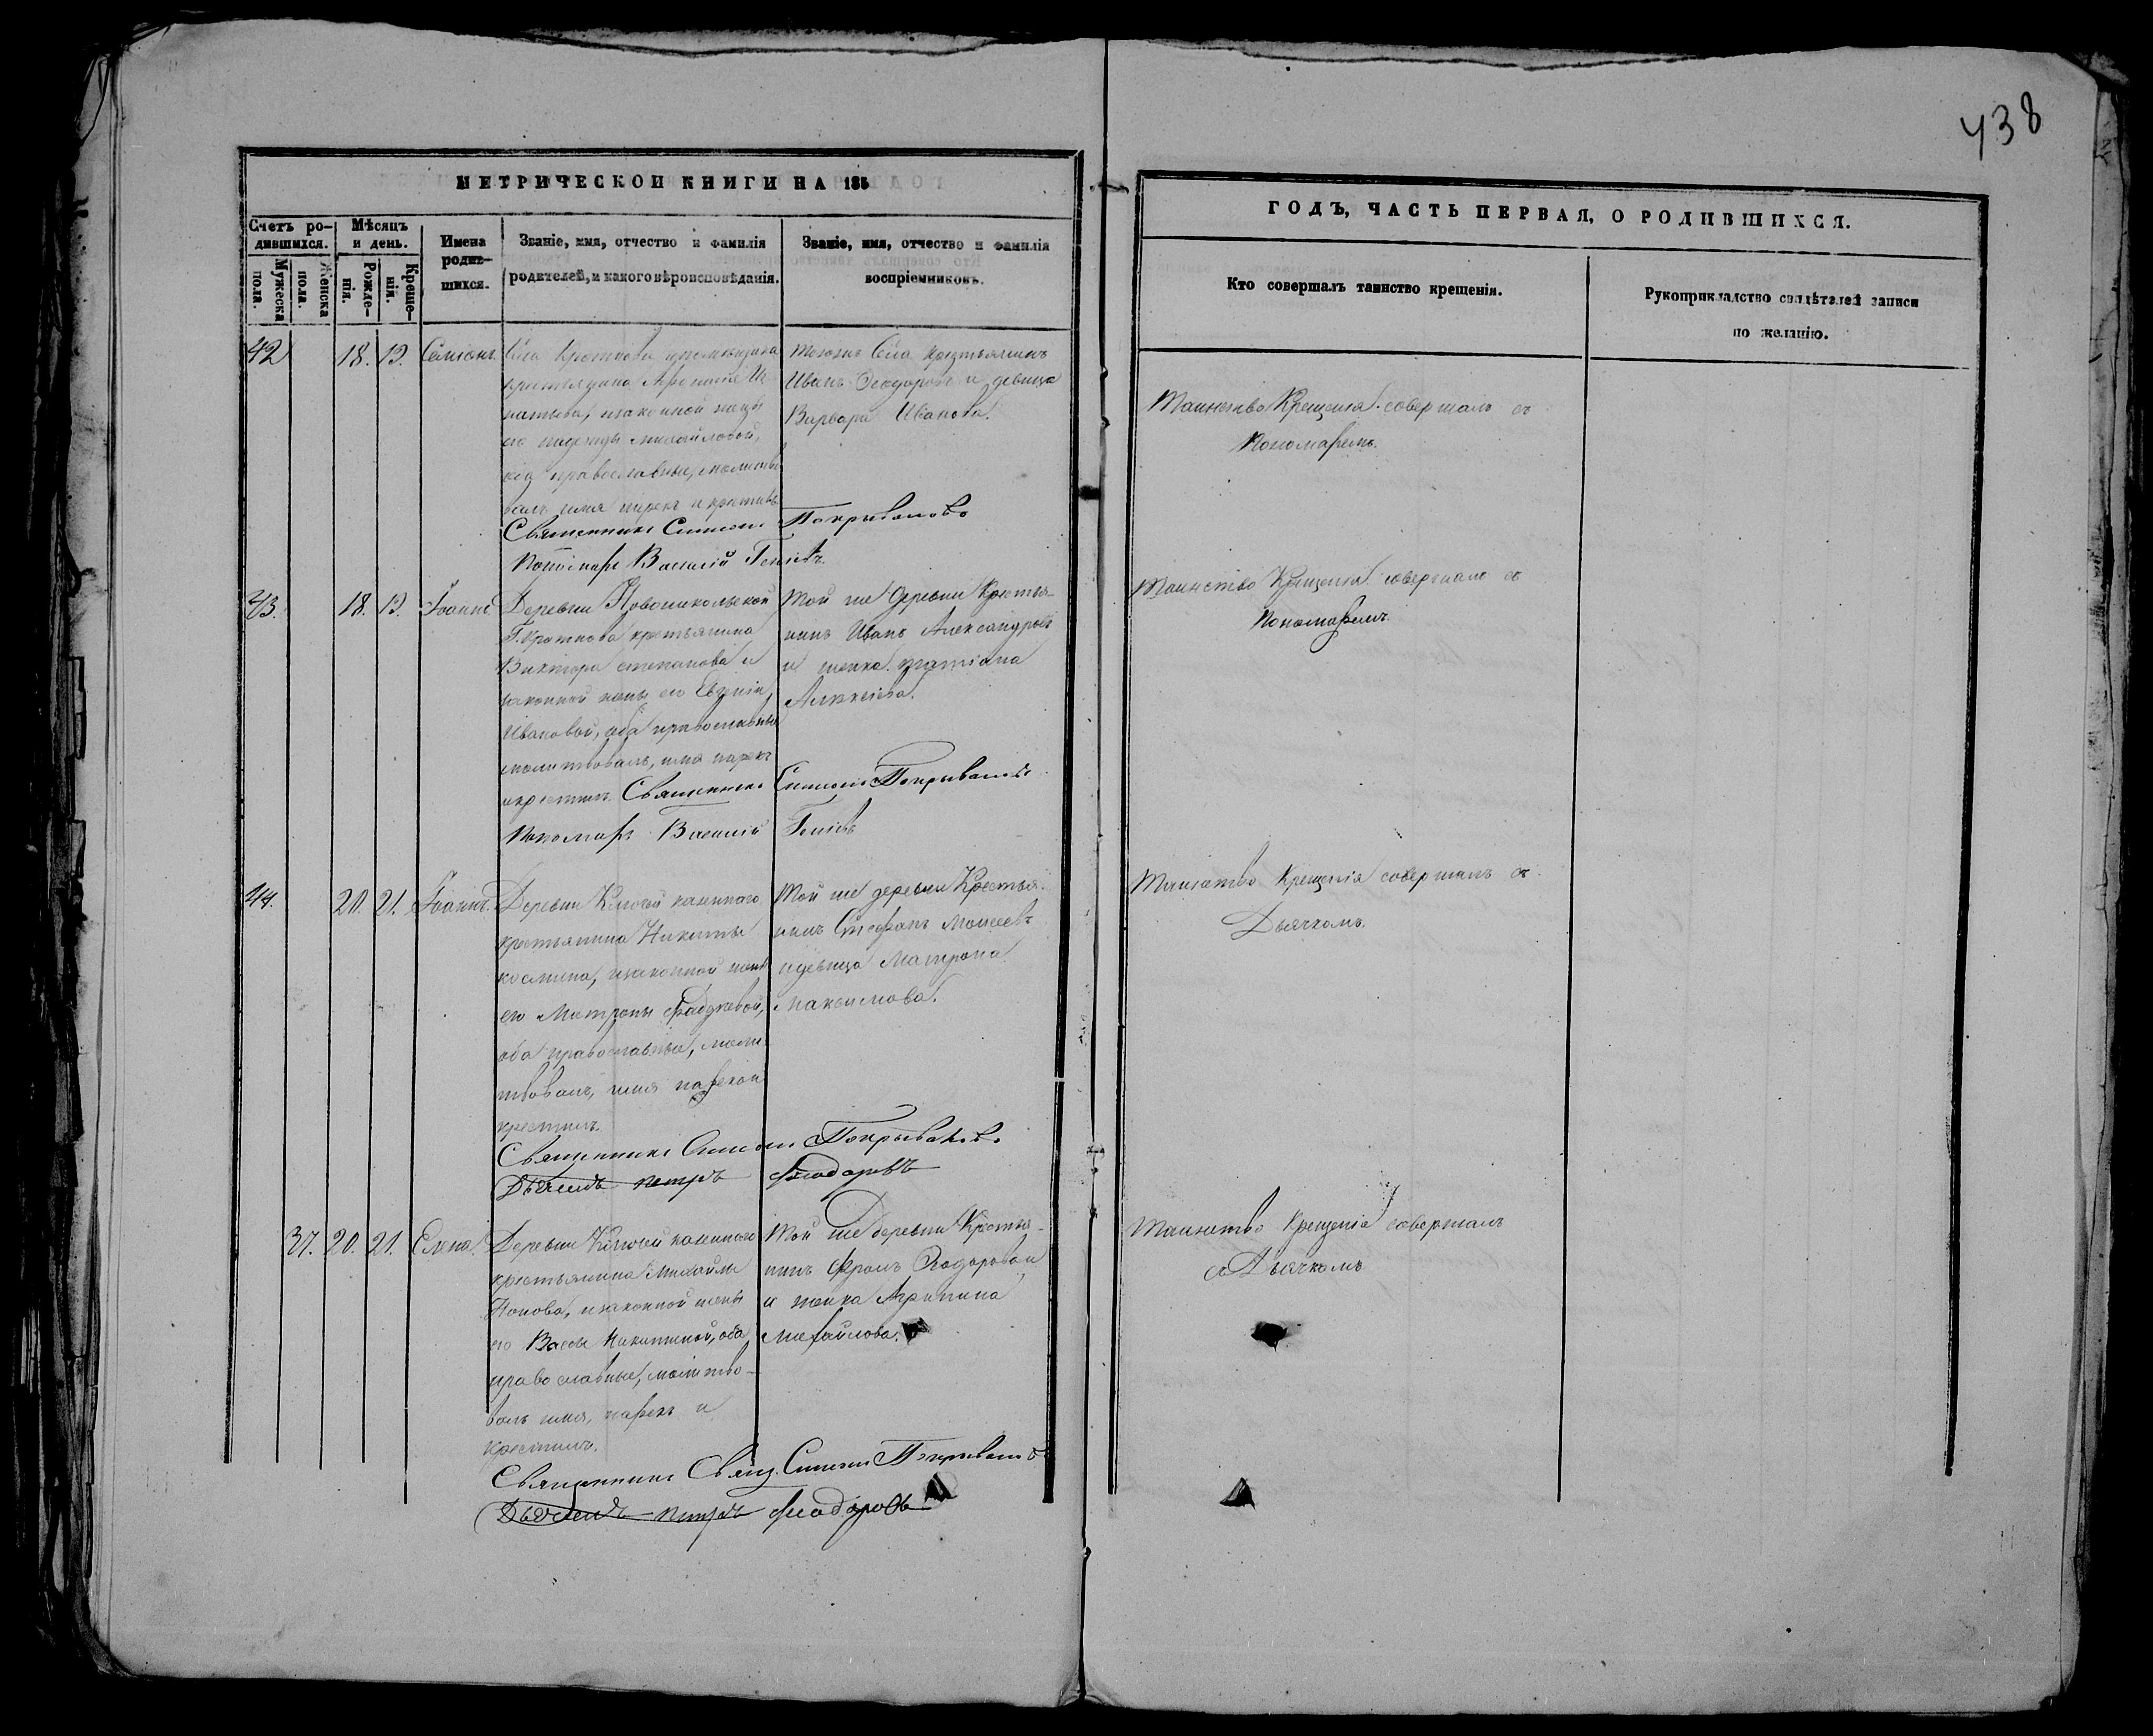 438
МЕТРИЧЕСКОЙ КНИГИ НА 185
ГОДЪ, ЧАСТЬ ПЕРВАЯ, О РОДИВШИХСЯ.
Счетъ ро-
дившихся.
Мужеска
пола.
Женска
пола.
Мѣсяцъ
и день.
Рожде-
нія.
Креще-
нія.
Имена
родив-
шихся.
Званіе, имя, отчество и фамилія
родителей, и какого вѣроисповѣданія.
Званіе, имя, отчество и фамилія
воспріемниковъ.
Кто совершалъ таинство крещенія.
Рукоприкладство свидѣтелей записи
по желанію.
42 18. 19. Симеонъ.
Села Кроткова
крестьянина
законной жены
его Надежды Михайловой,
оба православные, молитво-
валъ, имя нарекъ и крестилъ
Священникъ Симеонъ Покрываловъ
Пономарь Василій
Крестьянинъ
Иванъ Феодоровъ и девица
Варвара Иванова.
Таинство Крещенія совершалъ съ
Пономаремъ.
43. 18. 19. Іоаннъ
Деревни Новоникольской
Г. Кроткова крестьянина
Виктора Степанова и
законной жены его
Ивановой, оба православные
молитвовалъ, имя нарекъ
и крестилъ Священникъ Симеонъ Покрываловъ
Пономарь Василій
Той же деревни Крестья-
нинъ Иванъ Александровъ
и женка Татіана
Алексіева.
Таинство Крещенія совершалъ съ
Пономаремъ.
44. 20. 21. Іоаннъ.
Деревни Ключей казеннаго
крестьянина Никиты
Космина, и законной жены
его Матроны Фаддеевой,
оба православные, моли-
твовалъ, имя нарекъ и
крестилъ.
Священникъ Симеонъ Покрываловъ
Дьячекъ Петръ Феодоровъ
Той же деревни Крестья-
нинъ Стефанъ Моисеевъ
и девица Матрона
Максимова.
Таинство Крещенія совершалъ съ
Дьячкомъ.
37. 20. 21. Елена.
Деревни Ключей казеннаго
крестьянина Михаила
Попова, и законной жены
его Вассы Никитиной, оба
православные, молитво-
валъ имя, нарекъ и
крестилъ.
Священникъ Свящ. Симеонъ Покрываловъ
Дьячекъ Петръ Феодоровъ
Той же деревни Крестья-
нинъ Фролъ Феодоровъ
и женка Агрипина
Михайлова.
Таинство Крещенія совершалъ
съ Дьячкомъ